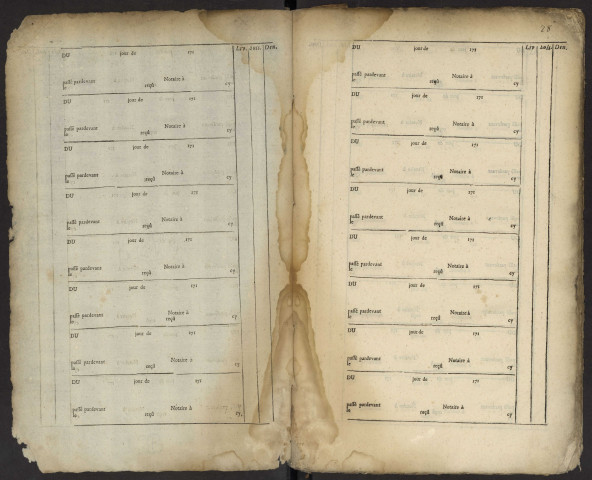 Liv. sols. Den.
DU jour de 171
passé pardevant Notaire à
le reçû cy
DU jour de 171
passé pardevant Notaire à
le reçû cy
DU jour de 171
passé pardevant Notaire à
le reçû cy
DU jour de 171
passé pardevant Notaire à
le reçû cy
DU jour de 171
passé pardevant Notaire à
le reçû cy
DU jour de 171
passé pardevant Notaire à
le reçû cy
DU jour de 171
passé pardevant Notaire à
le reçû cy
DU jour de 171
passé pardevant Notaire à
le reçû cy
28
Liv. sols. Den.
DU jour de 171
passé pardevant Notaire à
le reçû cy
DU jour de 171
passé pardevant Notaire à
le reçû cy
DU jour de 171
passé pardevant Notaire à
le reçû cy
DU jour de 171
passé pardevant Notaire à
le reçû cy
DU jour de 171
passé pardevant Notaire à
le reçû cy
DU jour de 171
passé pardevant Notaire à
le reçû cy
DU jour de 171
passé pardevant Notaire à
le reçû cy
DU jour de 171
passé pardevant Notaire à
le reçû cy